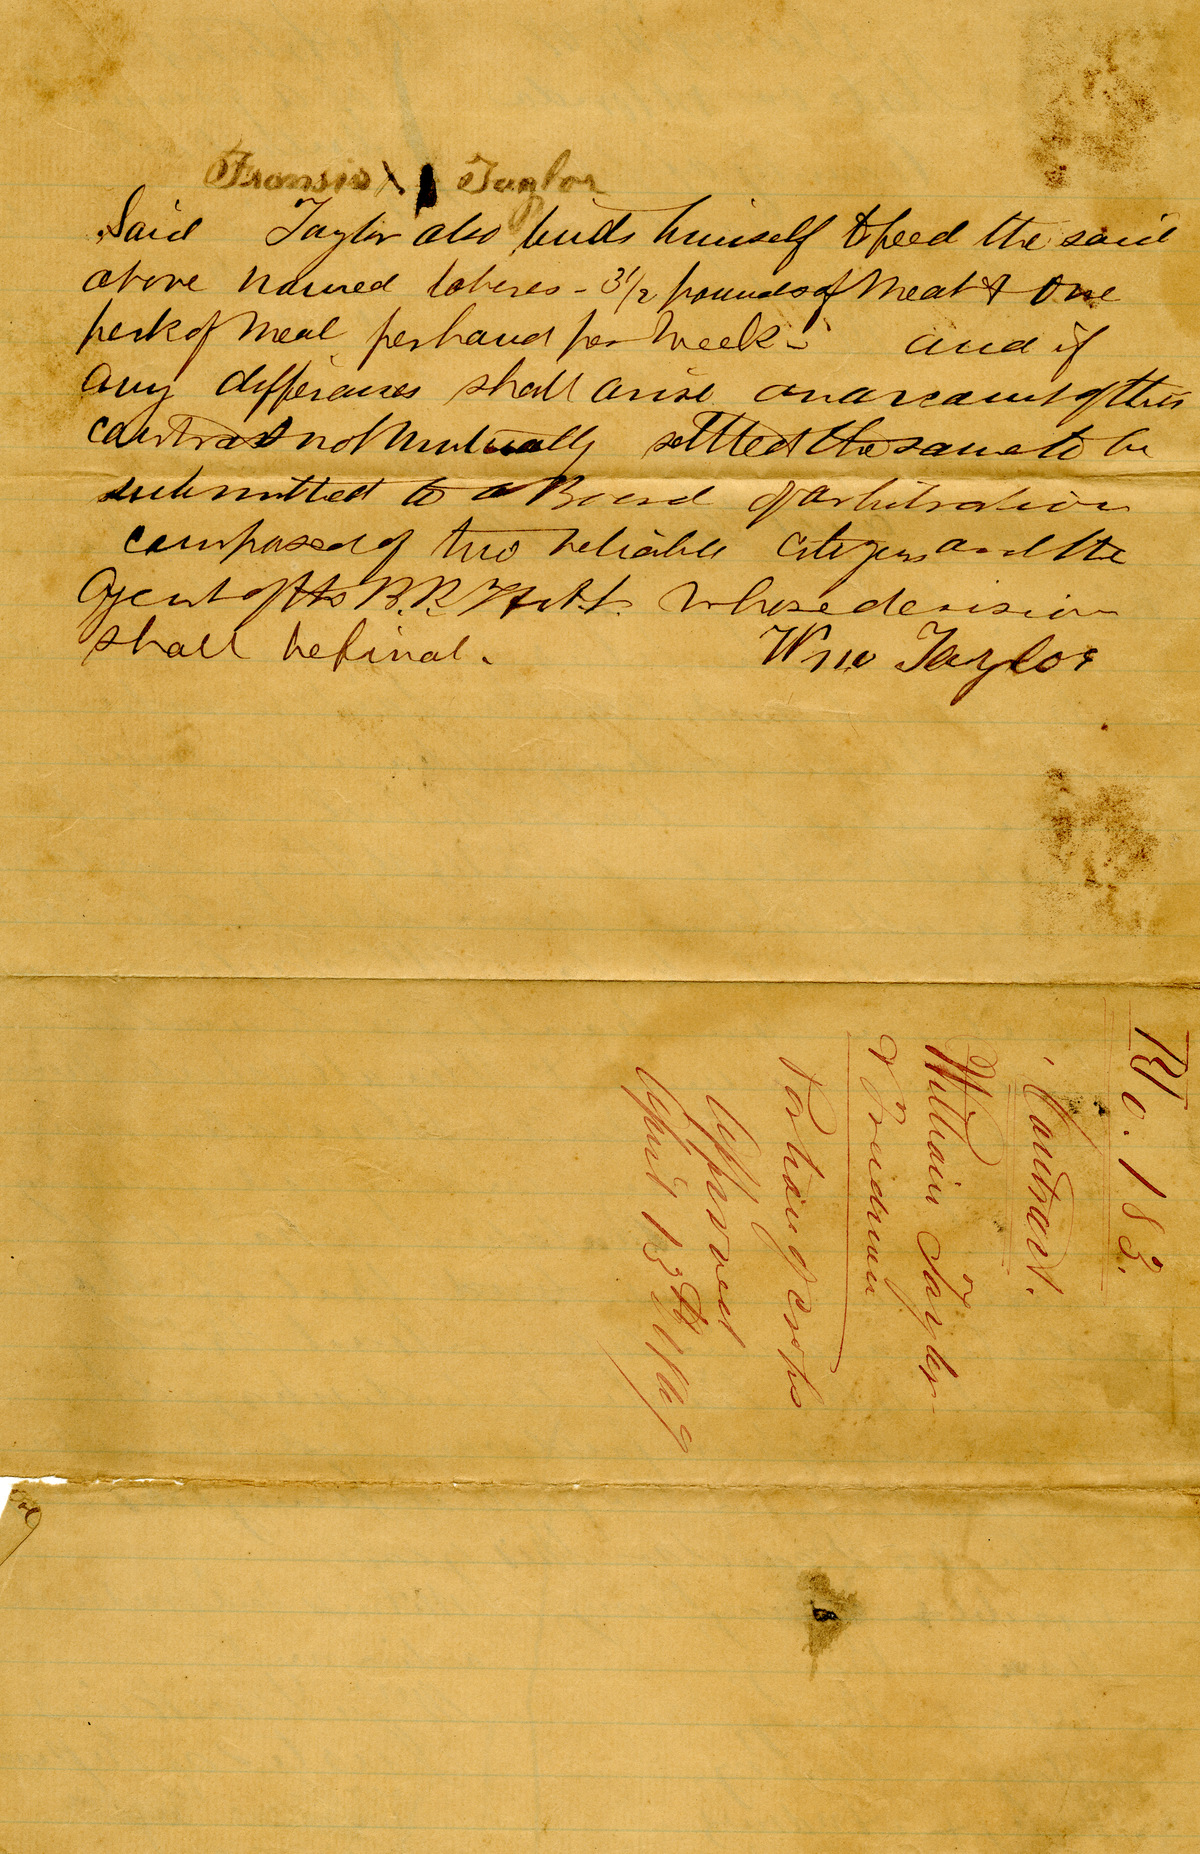 Fransis X Taylor
Said Taylor also binds himself to feed the said
above named laberes - 3 1/2 pounds of Meat & One
peck of Meal per hand per Week - and if
any differances shall arise on account of this
contract not mutually settled the same to be
submitted to a Board of arbitration
composed of two reliable citizens and the
Agent of the B. R. F. & A. L. whose decision
shall be final.
Wm Taylor
No. 183.
Contract.
William Taylor
&
Freidman
Portion of crops
Approved
April 13th